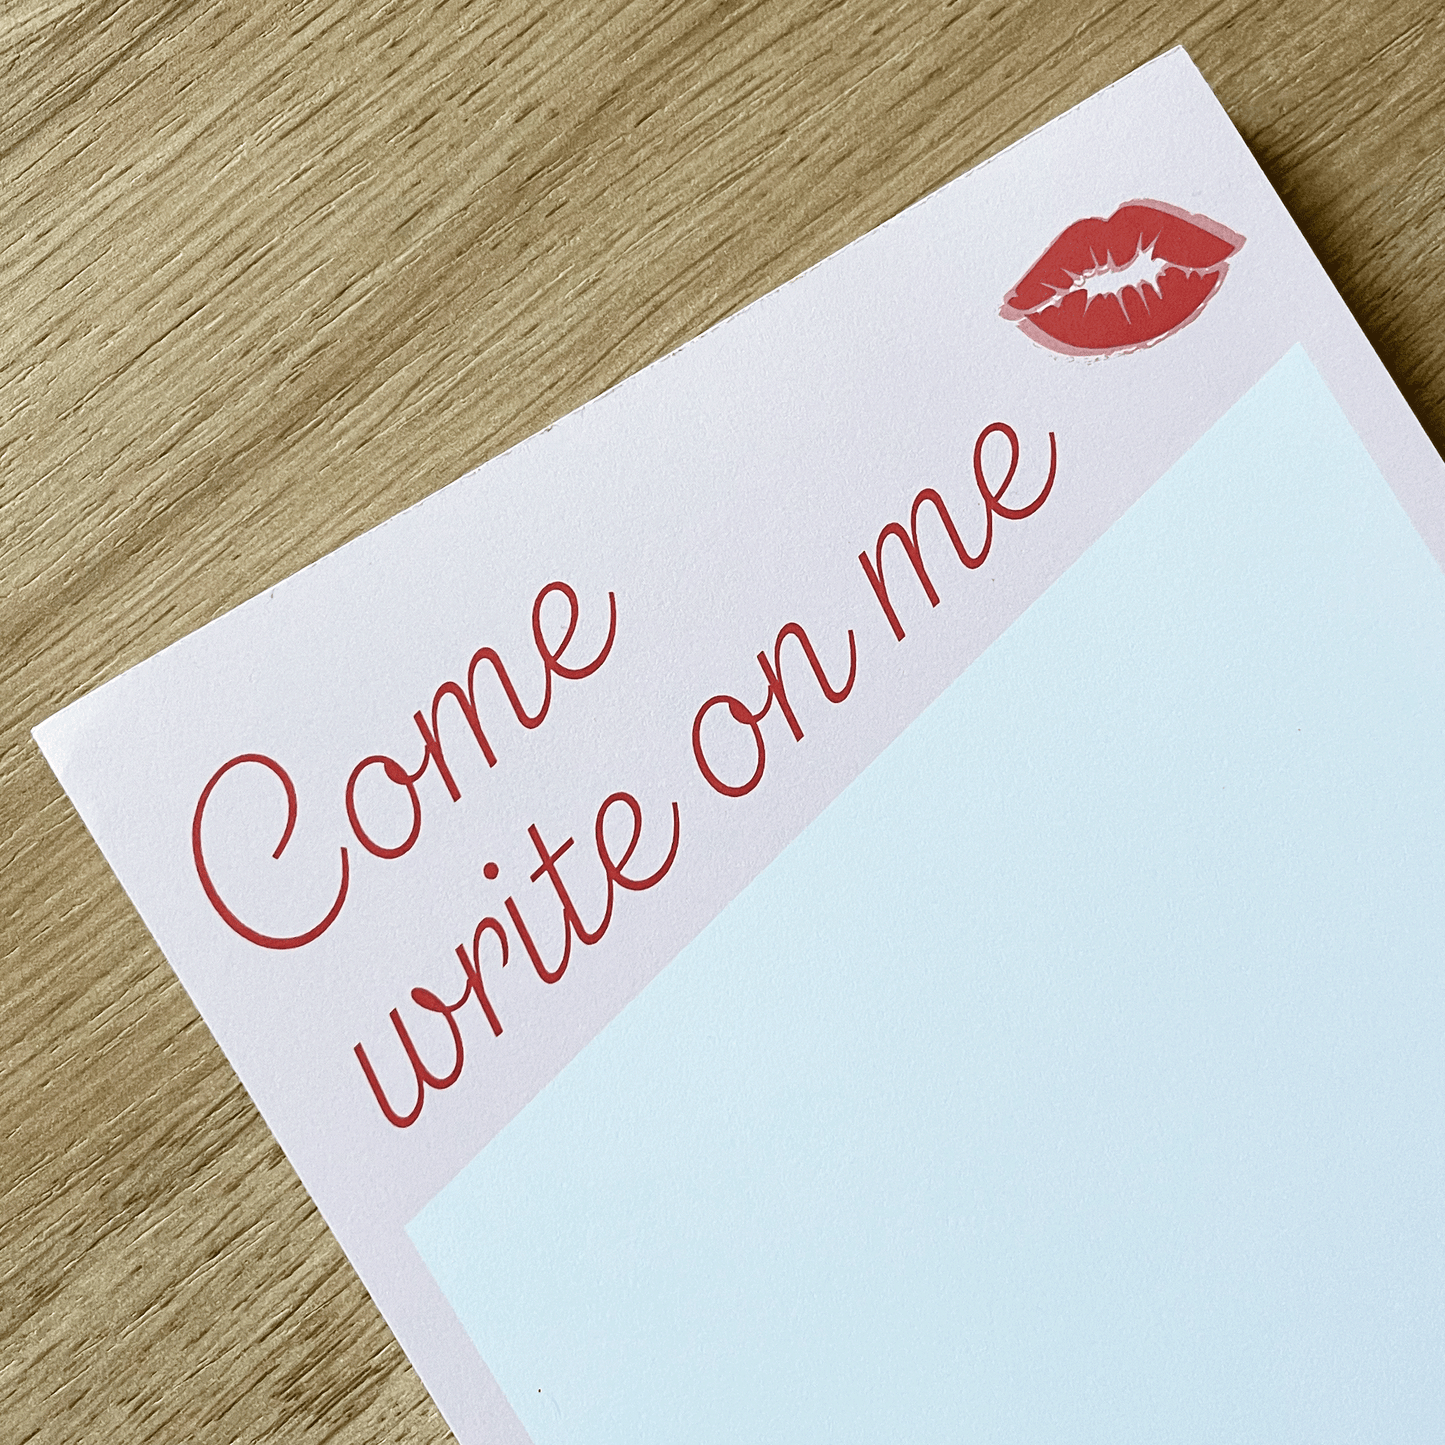 Come
write on me